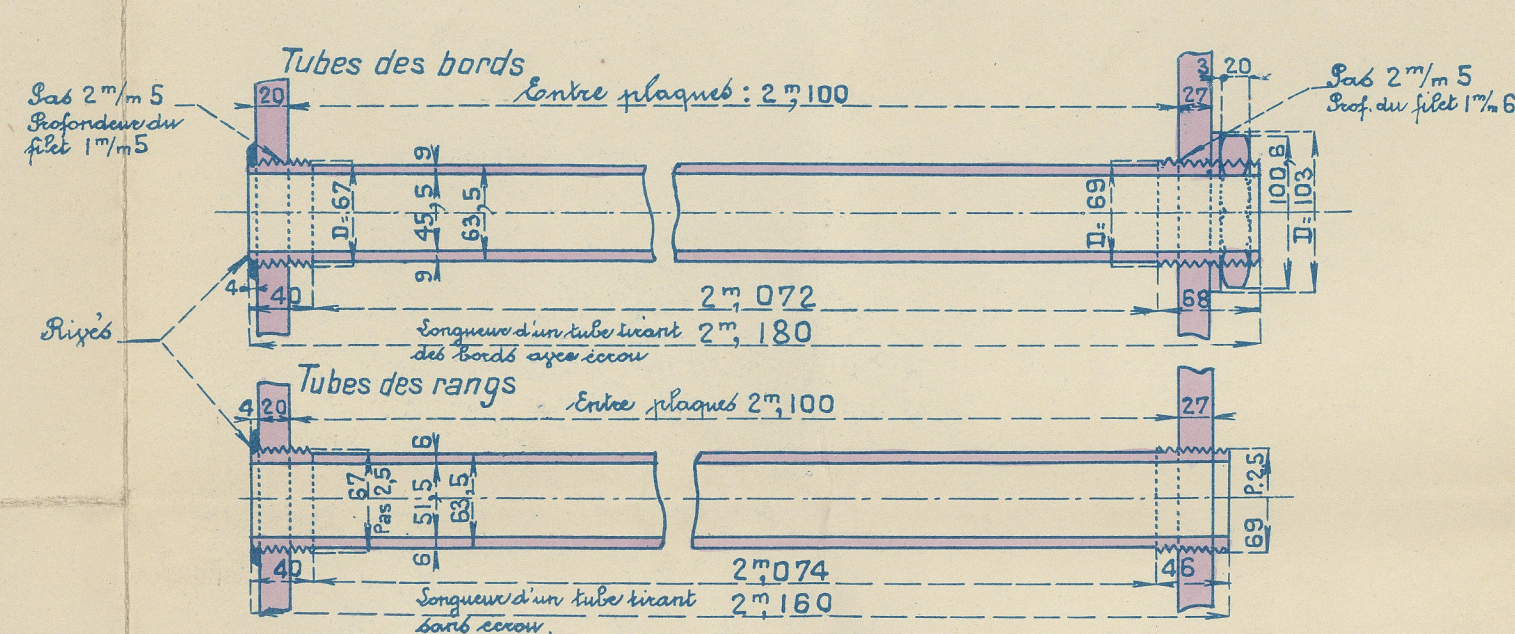 Tubes des bords
Pas 2 m/m 5
Profondeur du
filet 1 m/m 5
20
Entre plaques : 2m,100
27
3
20
Pas 2 m/m 5
Prof. du filet 1 m/m 6
D= 67
9
45,5
9
63,5
D= 69
100,6
D= 103
4
40
2m,072
68
Rivés
Longueur d'un tube tirant
des bords avec écrou
2m,180
Tubes des rangs
4
20
Entre plaques 2m,100
27
67
Pas 2,5
6
51,5
6
63,5
P.2,5
69
40
2m,074
46
Longueur d'un tube tirant
sans écrou.
2m,160